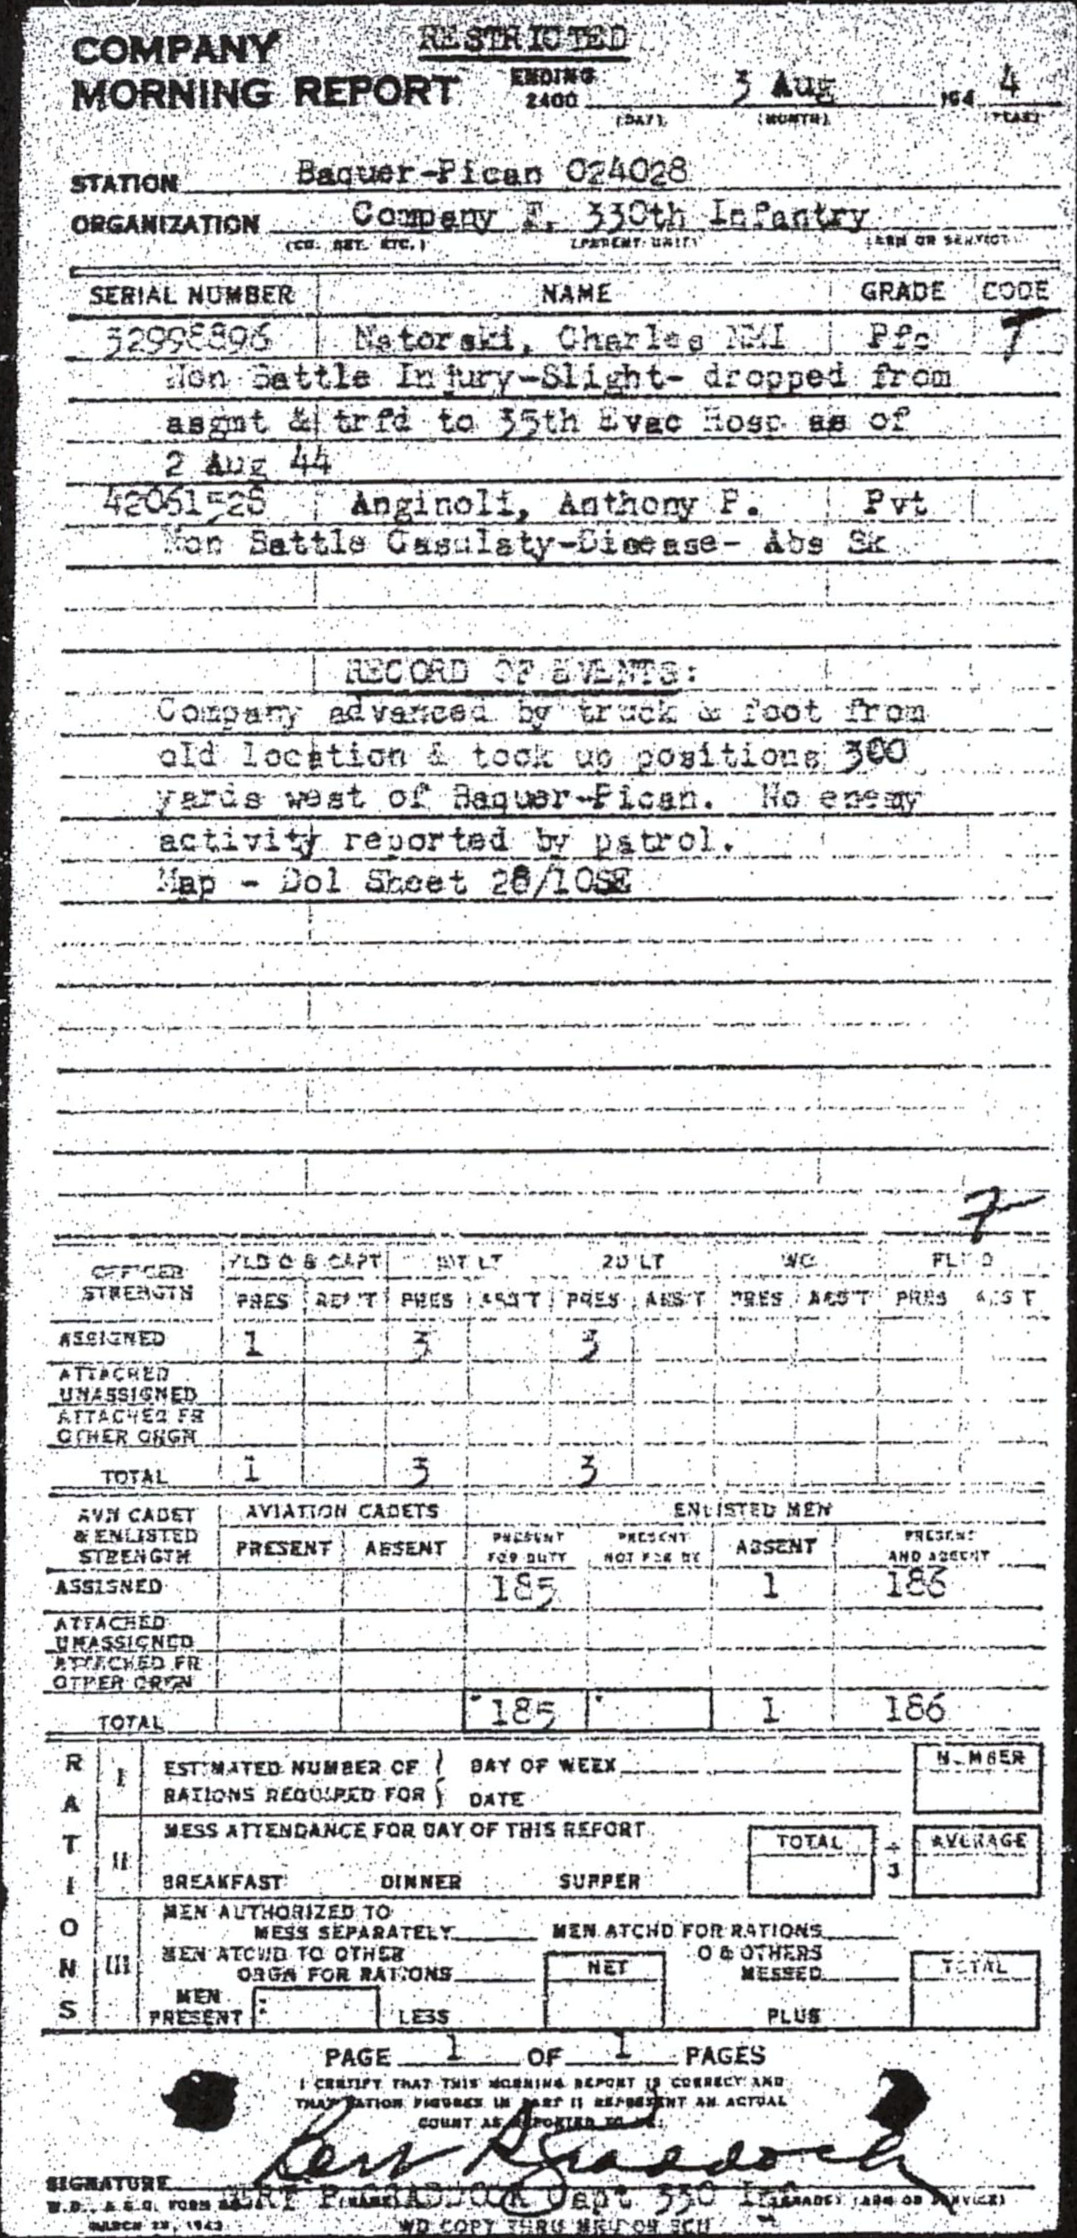 COMPANY
MORNING REPORT
RESTRICTED
ENDING
2400 3 Aug 194 4
(DAY) (MONTH) (YEAR)
STATION Baquer-Pican 024028
ORGANIZATION Company F, 330th Infantry
(CO. DET. ETC.) (PARENT UNIT) (ARM OR SERVICE)
SERIAL NUMBER NAME GRADE CODE
32998896 Natorski, Charles NMI Pfc
Non Battle Injury-Slight- dropped from
asgnt & trfd to 35th Evac Hosp as of
2 Aug 44
42061528 Anginoli, Anthony P. Pvt
Non Battle Casulaty-Disease- Abs Sk
RECORD OF EVENTS:
Company advanced by truck & foot from
old location & took up positions 300
yards west of Baquer-Pican. No enemy
activity reported by patrol.
Map - Dol Sheet 28/10SE
OFFICER
STRENGTH
FLD O & CAPT 1ST LT 2D LT WO FLT O
PRES ABS'T PRES ABS'T PRES ABS'T PRES ABS'T PRES ABS'T
ASSIGNED 1 3 3
ATTACHED
UNASSIGNED
ATTACHED FR
OTHER ORGN
TOTAL 1 3 3
AVN CADET
& ENLISTED
STRENGTH
AVIATION CADETS ENLISTED MEN
PRESENT ABSENT PRESENT FOR DUTY PRESENT NOT FOR DY ABSENT PRESENT AND ABSENT
ASSIGNED 185 1 186
ATTACHED
UNASSIGNED
ATTACHED FR
OTHER ORGN
TOTAL 185 1 186
RATIONS
I ESTIMATED NUMBER OF DAY OF WEEK NUMBER
RATIONS REQUIRED FOR DATE
II MESS ATTENDANCE FOR DAY OF THIS REPORT TOTAL ÷ 3 AVERAGE
BREAKFAST DINNER SUPPER
III MEN AUTHORIZED TO
MESS SEPARATELY MEN ATCHD FOR RATIONS
MEN ATCHD TO OTHER
ORGN FOR RATIONS NET O & OTHERS
MESSED TOTAL
MEN
PRESENT LESS PLUS
PAGE 1 OF 1 PAGES
I CERTIFY THAT THIS MORNING REPORT IS CORRECT AND
THAT RATION FIGURES IN PART II REPRESENT AN ACTUAL
COUNT AS REPORTED TO ME:
SIGNATURE
Capt 330 Inf
(NAME) (GRADE) (ARM OR SERVICE)
W.D., A.G.O. FORM
MARCH 1943
WD COPY THRU MRU OR SCU